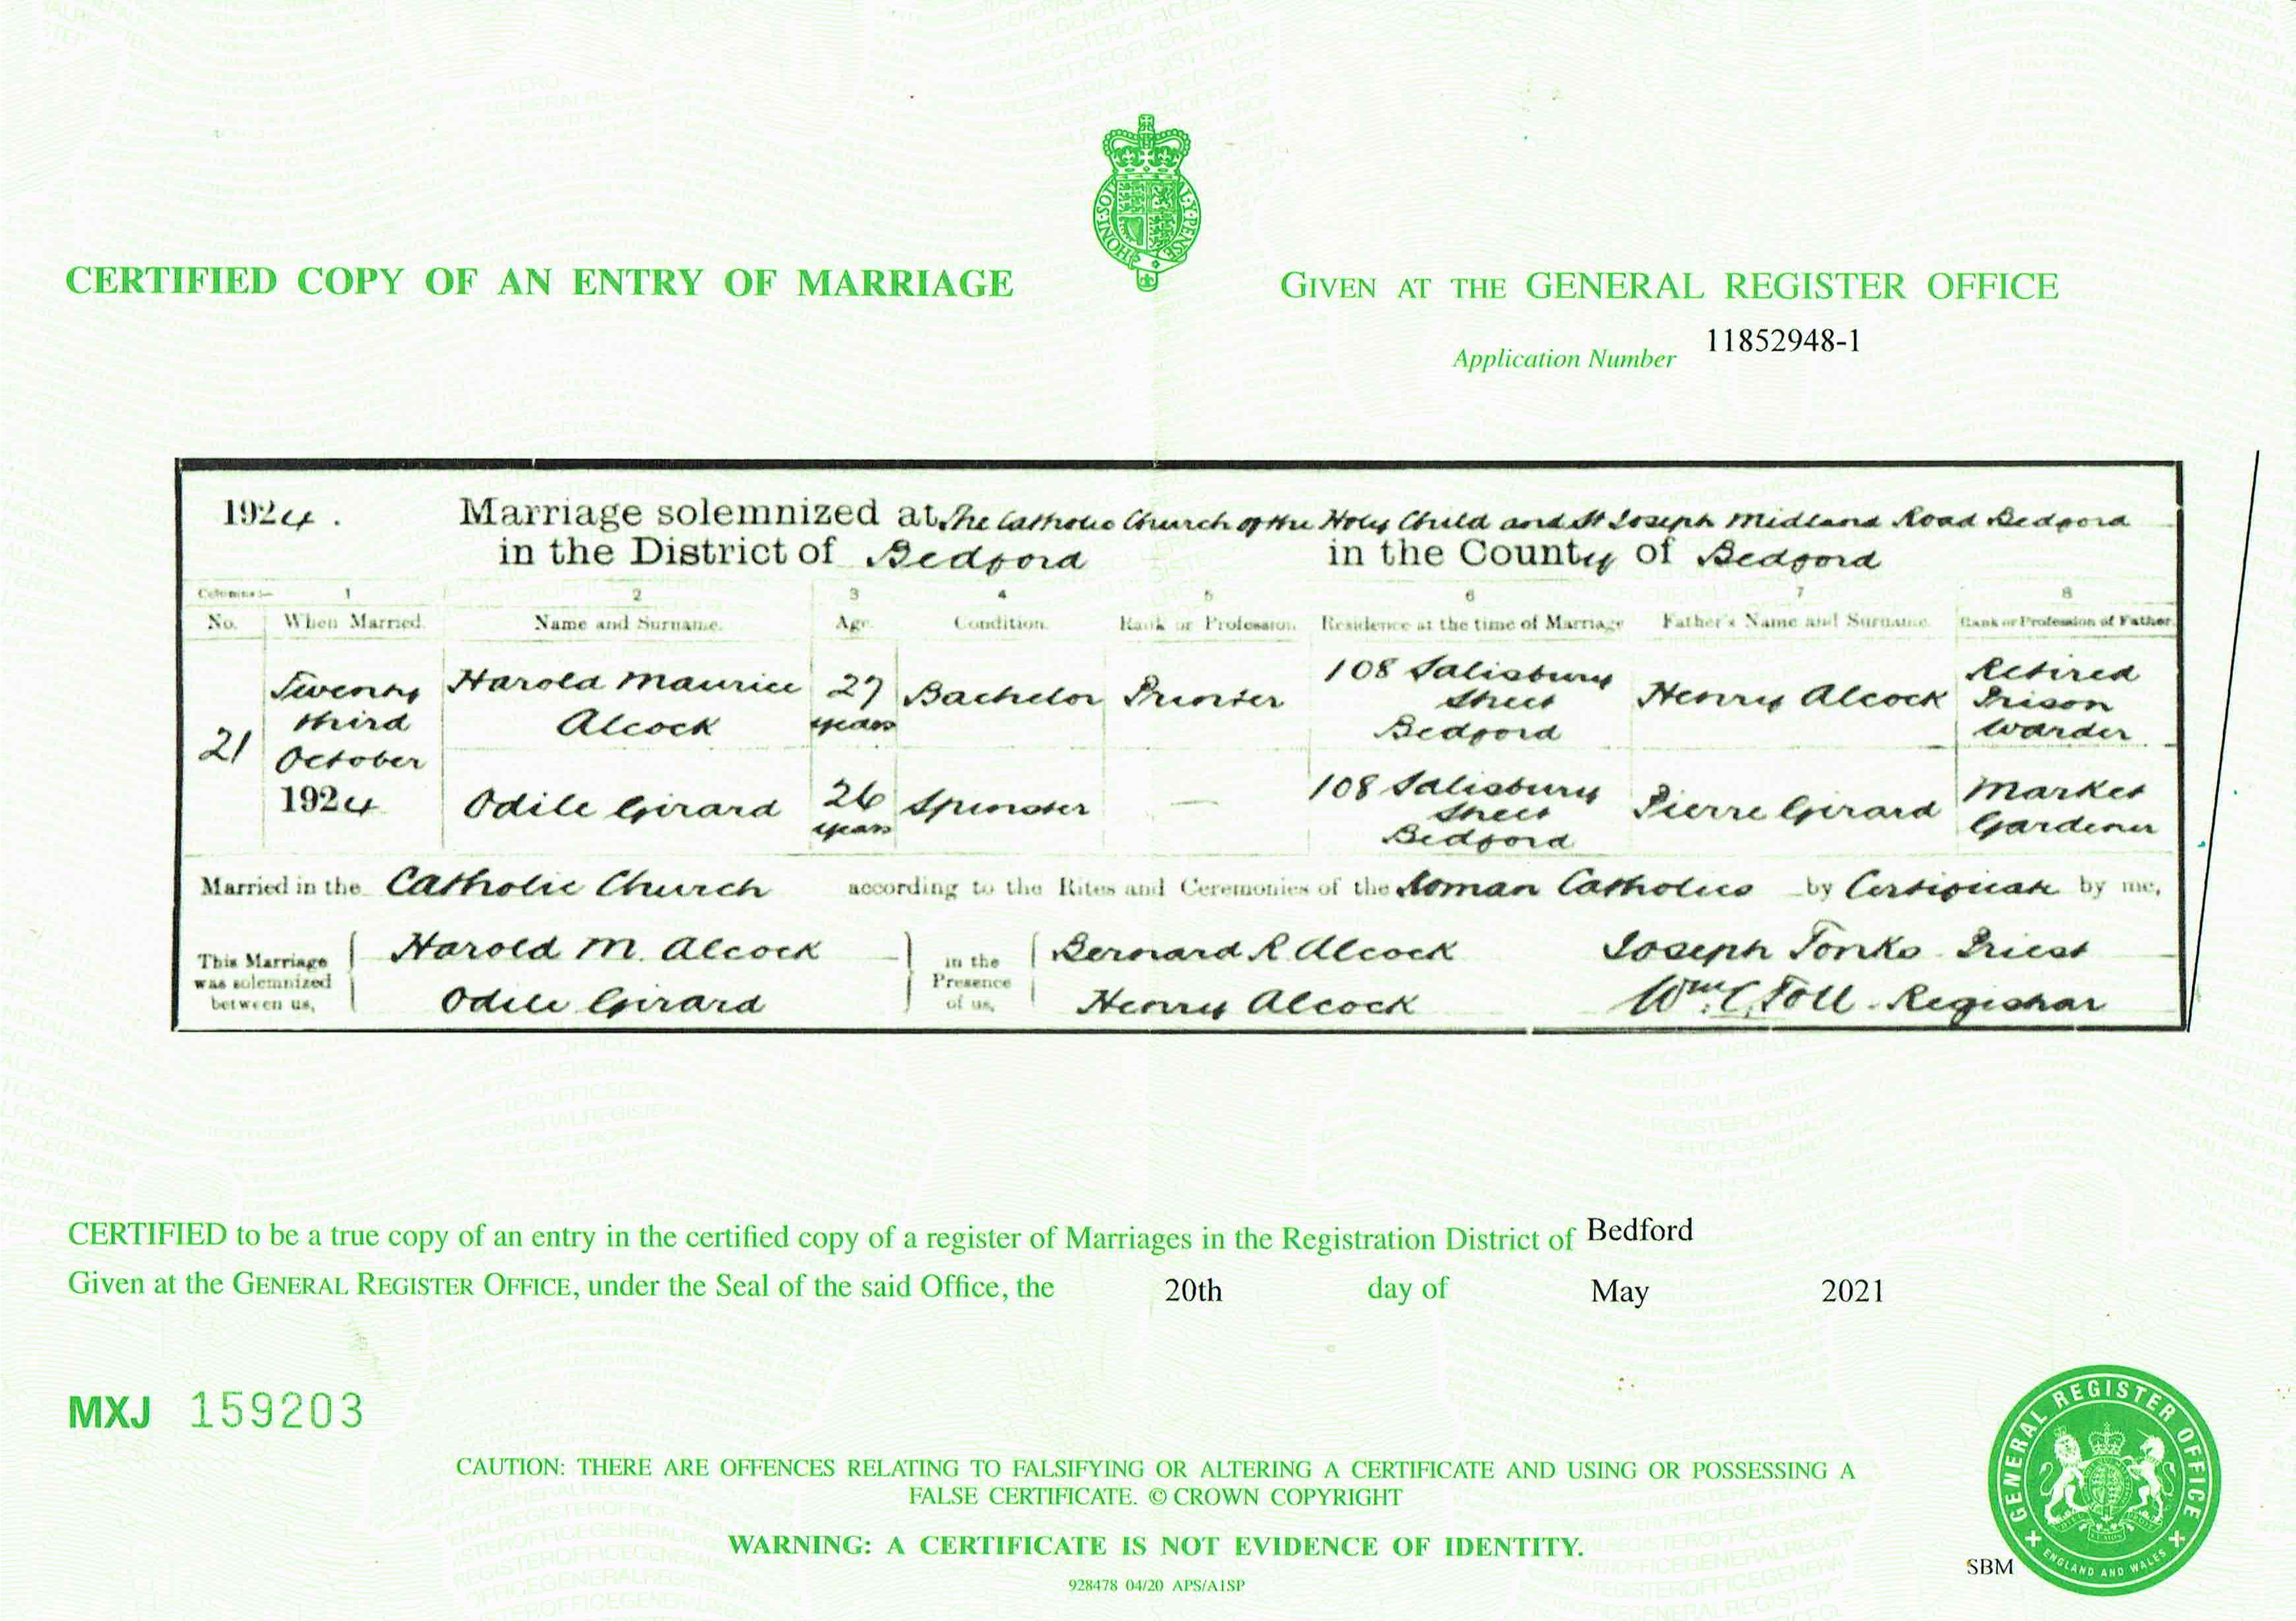 HONI·SOIT·Q AL·Y·PENSE
CERTIFIED COPY OF AN ENTRY OF MARRIAGE
GIVEN AT THE GENERAL REGISTER OFFICE
Application Number 11852948-1
1924. Marriage solemnized at The Catholic Church of the Holy Child and St Joseph Midland Road Bedford
in the District of Bedford in the County of Bedford
Columns:— 1 2 3 4 5 6 7 8
No. When Married. Name and Surname. Age. Condition. Rank or Profession. Residence at the time of Marriage Father's Name and Surname. Rank or Profession of Father.
21
Twenty
third
October
1924
Harold Maurice
Alcock
27
years
Bachelor
Printer
108 Salisbury
Street
Bedford
Henry Alcock
Retired
Prison
Warder
Odile Girard
26
years
Spinster
—
108 Salisbury
Street
Bedford
Pierre Girard
Market
Gardener
Married in the Catholic Church according to the Rites and Ceremonies of the Roman Catholics by Certificate by me,
This Marriage
was solemnized
between us,
Harold M. Alcock
Odile Girard
in the
Presence
of us,
Bernard R Alcock
Henry Alcock
Joseph Tonks Priest
Wm. C. Toll - Registrar
CERTIFIED to be a true copy of an entry in the certified copy of a register of Marriages in the Registration District of Bedford
Given at the GENERAL REGISTER OFFICE, under the Seal of the said Office, the 20th day of May 2021
MXJ 159203
CAUTION: THERE ARE OFFENCES RELATING TO FALSIFYING OR ALTERING A CERTIFICATE AND USING OR POSSESSING A
FALSE CERTIFICATE. © CROWN COPYRIGHT
WARNING: A CERTIFICATE IS NOT EVIDENCE OF IDENTITY.
928478 04/20 APS/A1SP
SBM
GENERAL REGISTER OFFICE
ENGLAND AND WALES